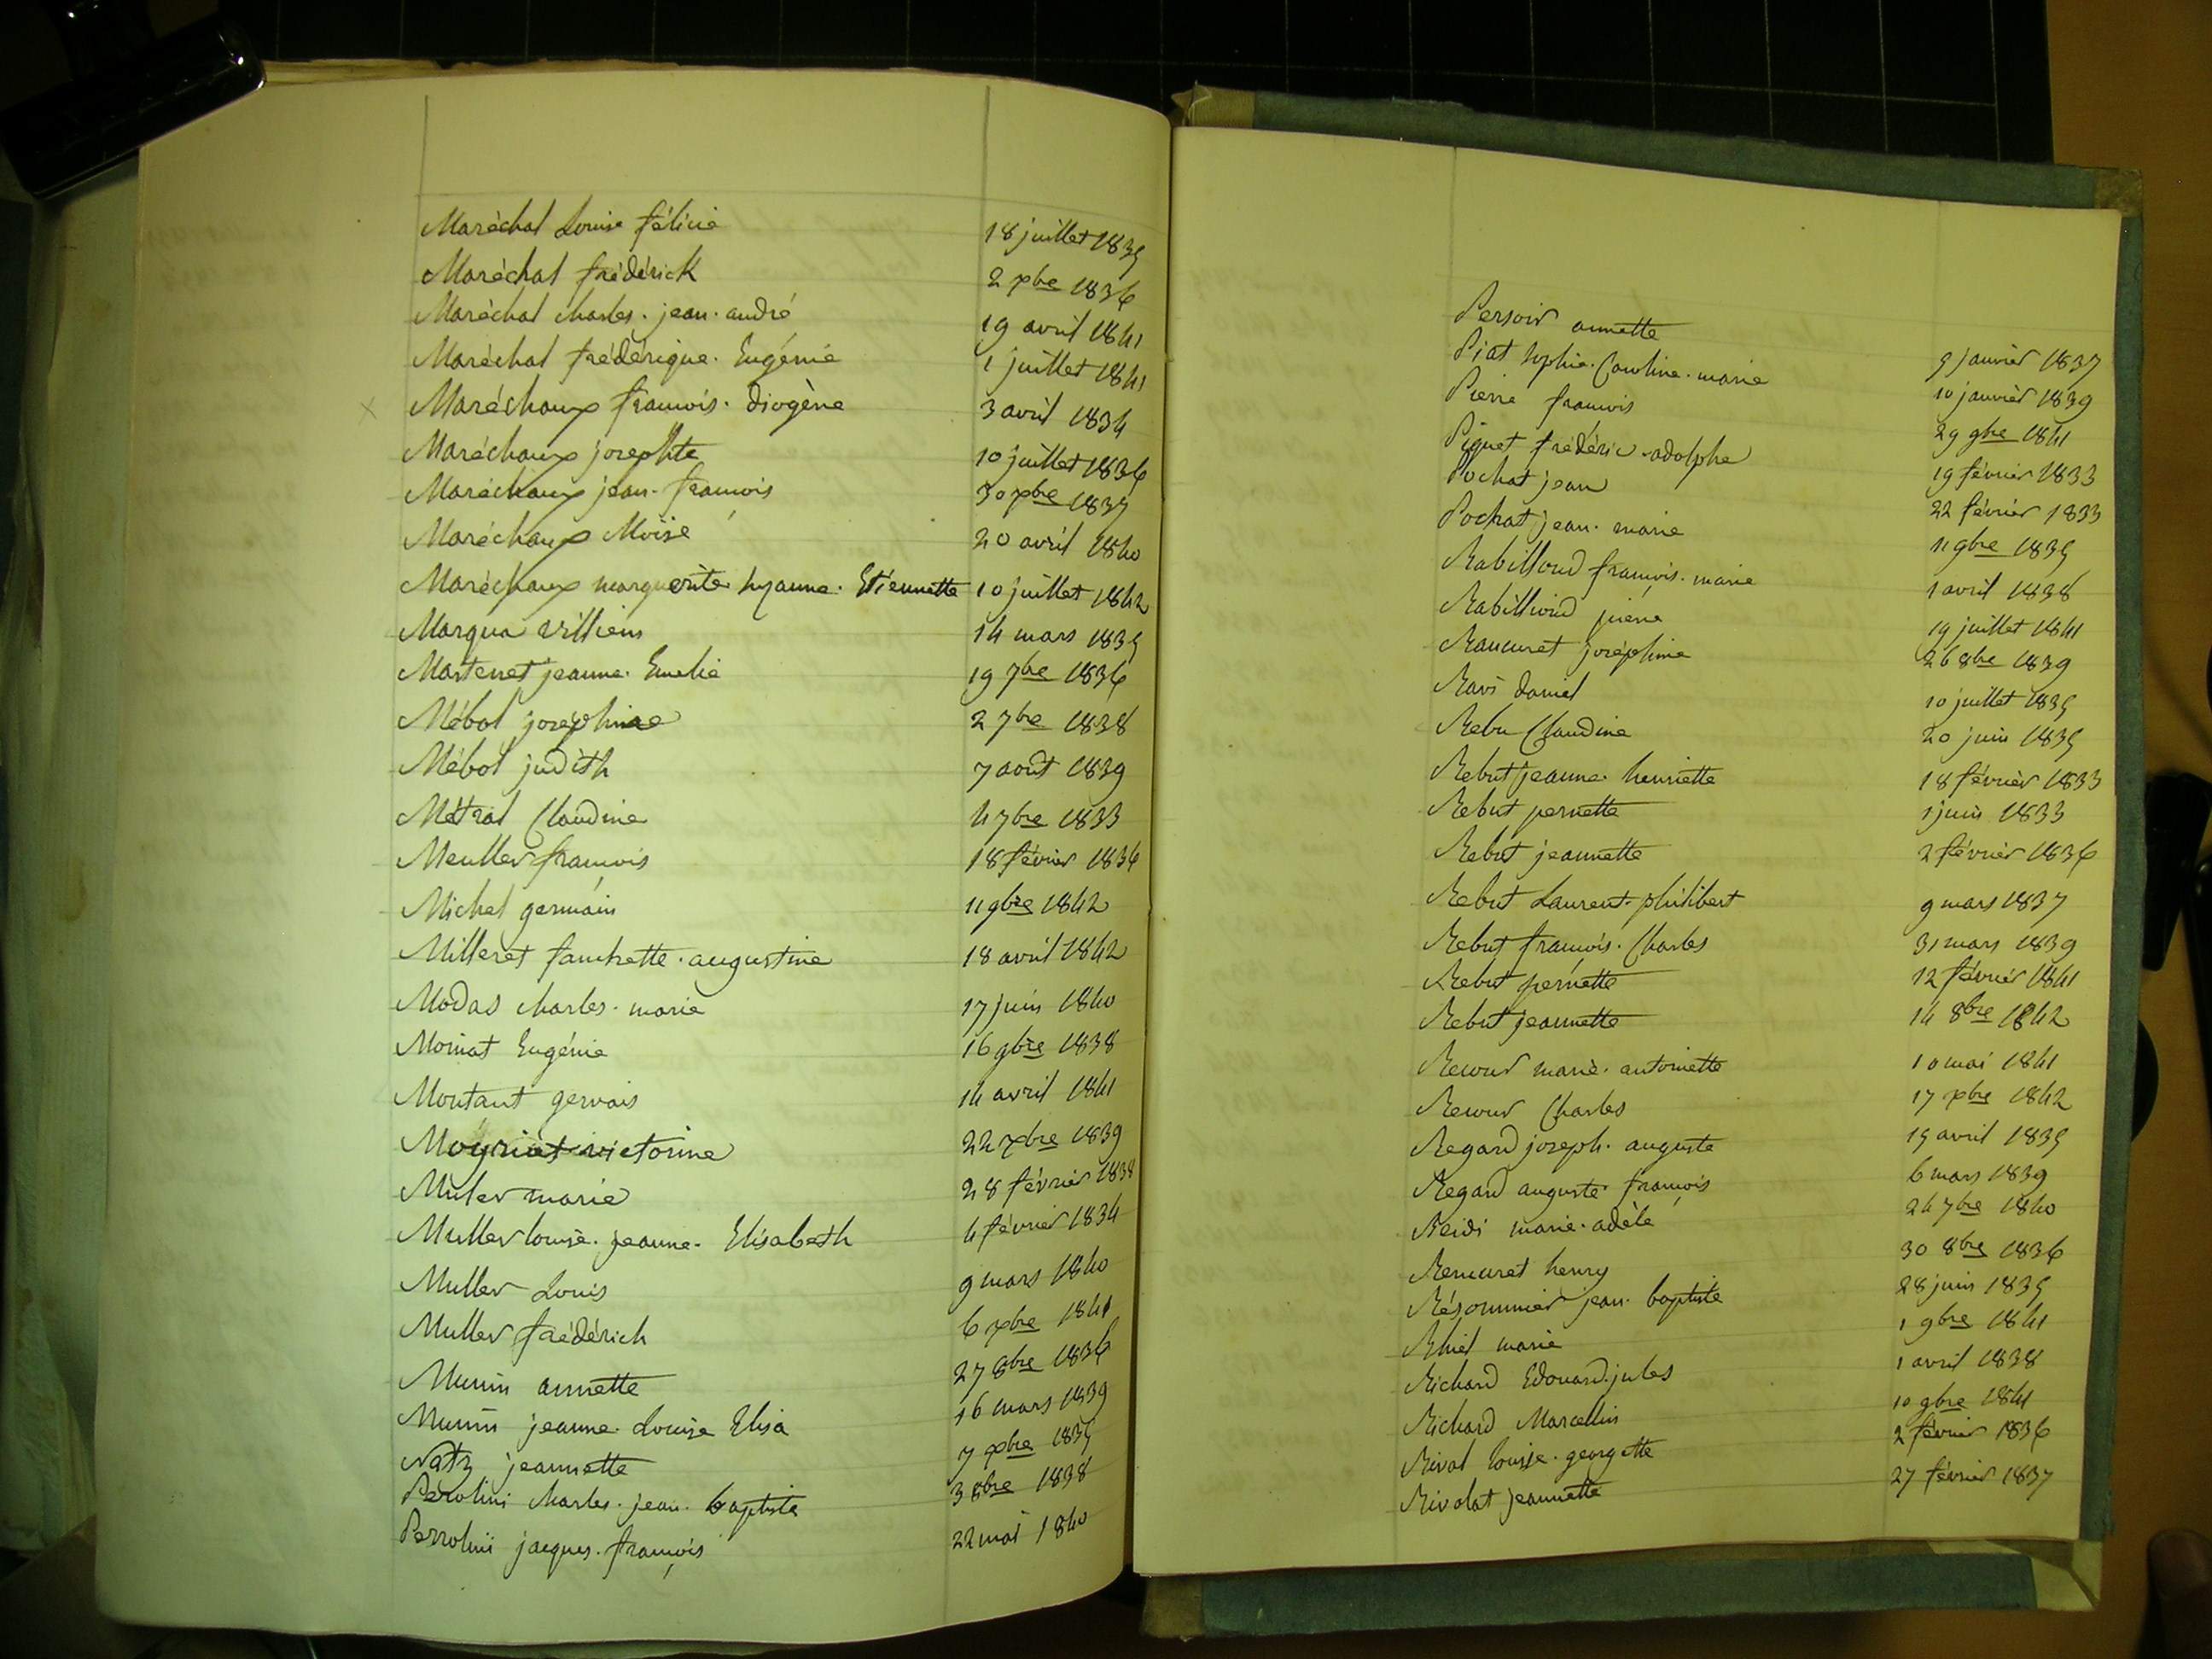 Maréchal Louise félicie 18 juillet 1835
Maréchal frédérick 2 xbre 1836
Maréchal charles. jean. andré 19 avril 1841
Maréchal frédérique. Eugénie 1 juillet 1841
x Maréchaux françois. diogène 3 avril 1834
Maréchaux josephte 10 juillet 1836
Maréchaux jean. françois 30 xbre 1837
Maréchaux Moïse 20 avril 1840
Maréchaux marguerite suzanne. Etiennette 10 juillet 1842
Marqua Villiem 14 mars 1835
Martenet jeanne. Emelie 19 7bre 1836
Mébol joséphine 2 7bre 1838
Mébol judith 7 août 1839
Métral Claudine 4 7bre 1833
Meuller françois 18 février 1836
Michel germain 11 9bre 1842
Milleret fanchette. augustine 18 avril 1842
Modas charles. marie 17 juin 1840
Moinat Eugénie 16 9bre 1838
Montant gervais 14 avril 1841
Moyriat victorine 22 xbre 1839
Muler marie 28 février 1838
Muller louise. jeanne. Elisabeth 4 février 1834
Muller Louis 9 mars 1840
Muller frédérich 6 xbre 1841
Munin annette 27 8bre 1836
Munin jeanne. Louise Elisa 16 mars 1839
Natz jeannette 7 xbre 1835
Pérolini charles. jean. baptiste 3 8bre 1838
Perrolini jacques. françois 22 mai 1840
Persoir annette 9 janvier 1837
Piat sophie. Caroline. marie 10 janvier 1839
Pierre françois 29 9bre 1841
Piguet frédéric. adolphe 19 février 1833
Pochat jean 22 février 1833
Pochat jean. marie 11 9bre 1835
Rabilloud françois. marie 1 avril 1838
Rabilloud pierre 19 juillet 1841
Rancuret joséphine 26 8bre 1839
Ravi daniel 10 juillet 1835
Rebu Claudine 20 juin 1835
Rebut jeanne. henriette 18 février 1833
Rebut pernette 1 juin 1833
Rebut jeannette 2 février 1836
Rebut Laurent. philibert 9 mars 1837
Rebut françois. Charles 31 mars 1839
Rebut pernette 12 février 1841
Rebut jeannette 14 8bre 1842
Recour marie. antoinette 10 mai 1841
Recour Charles 17 xbre 1842
Regard joseph. auguste 15 avril 1835
Regard auguste françois 6 mars 1839
Reidi marie. adèle 24 7bre 1840
Remuret henry 30 8bre 1836
Résommier jean. baptiste 28 juin 1835
Rhiel marie 1 9bre 1841
Richard Edouard. jules 1 avril 1838
Richard Marcellin 10 9bre 1841
Rival louise. georgette 2 février 1836
Rivolat jeannette 27 février 1837